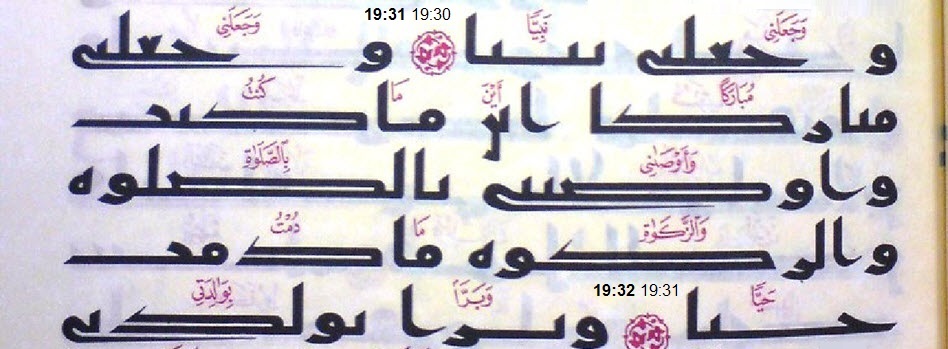 19:31 19:30
وَجَعَلَنِي نَبِيًّا وَجَعَلَنِي
وجعلني نبيا وجعلني
مُبَارَكًا أَيْنَ مَا كُنْتُ
مباركا اين ما كنت
وَأَوْصَٰنِي بِالصَّلَوٰةِ
واوصني بالصلوه
وَالزَّكَوٰةِ مَا دُمْتُ
والزكوه ما دمت
19:32 19:31
حَيًّا وَبَرًّا بِوَٰلِدَتِي
حيا وبرا بولدتي